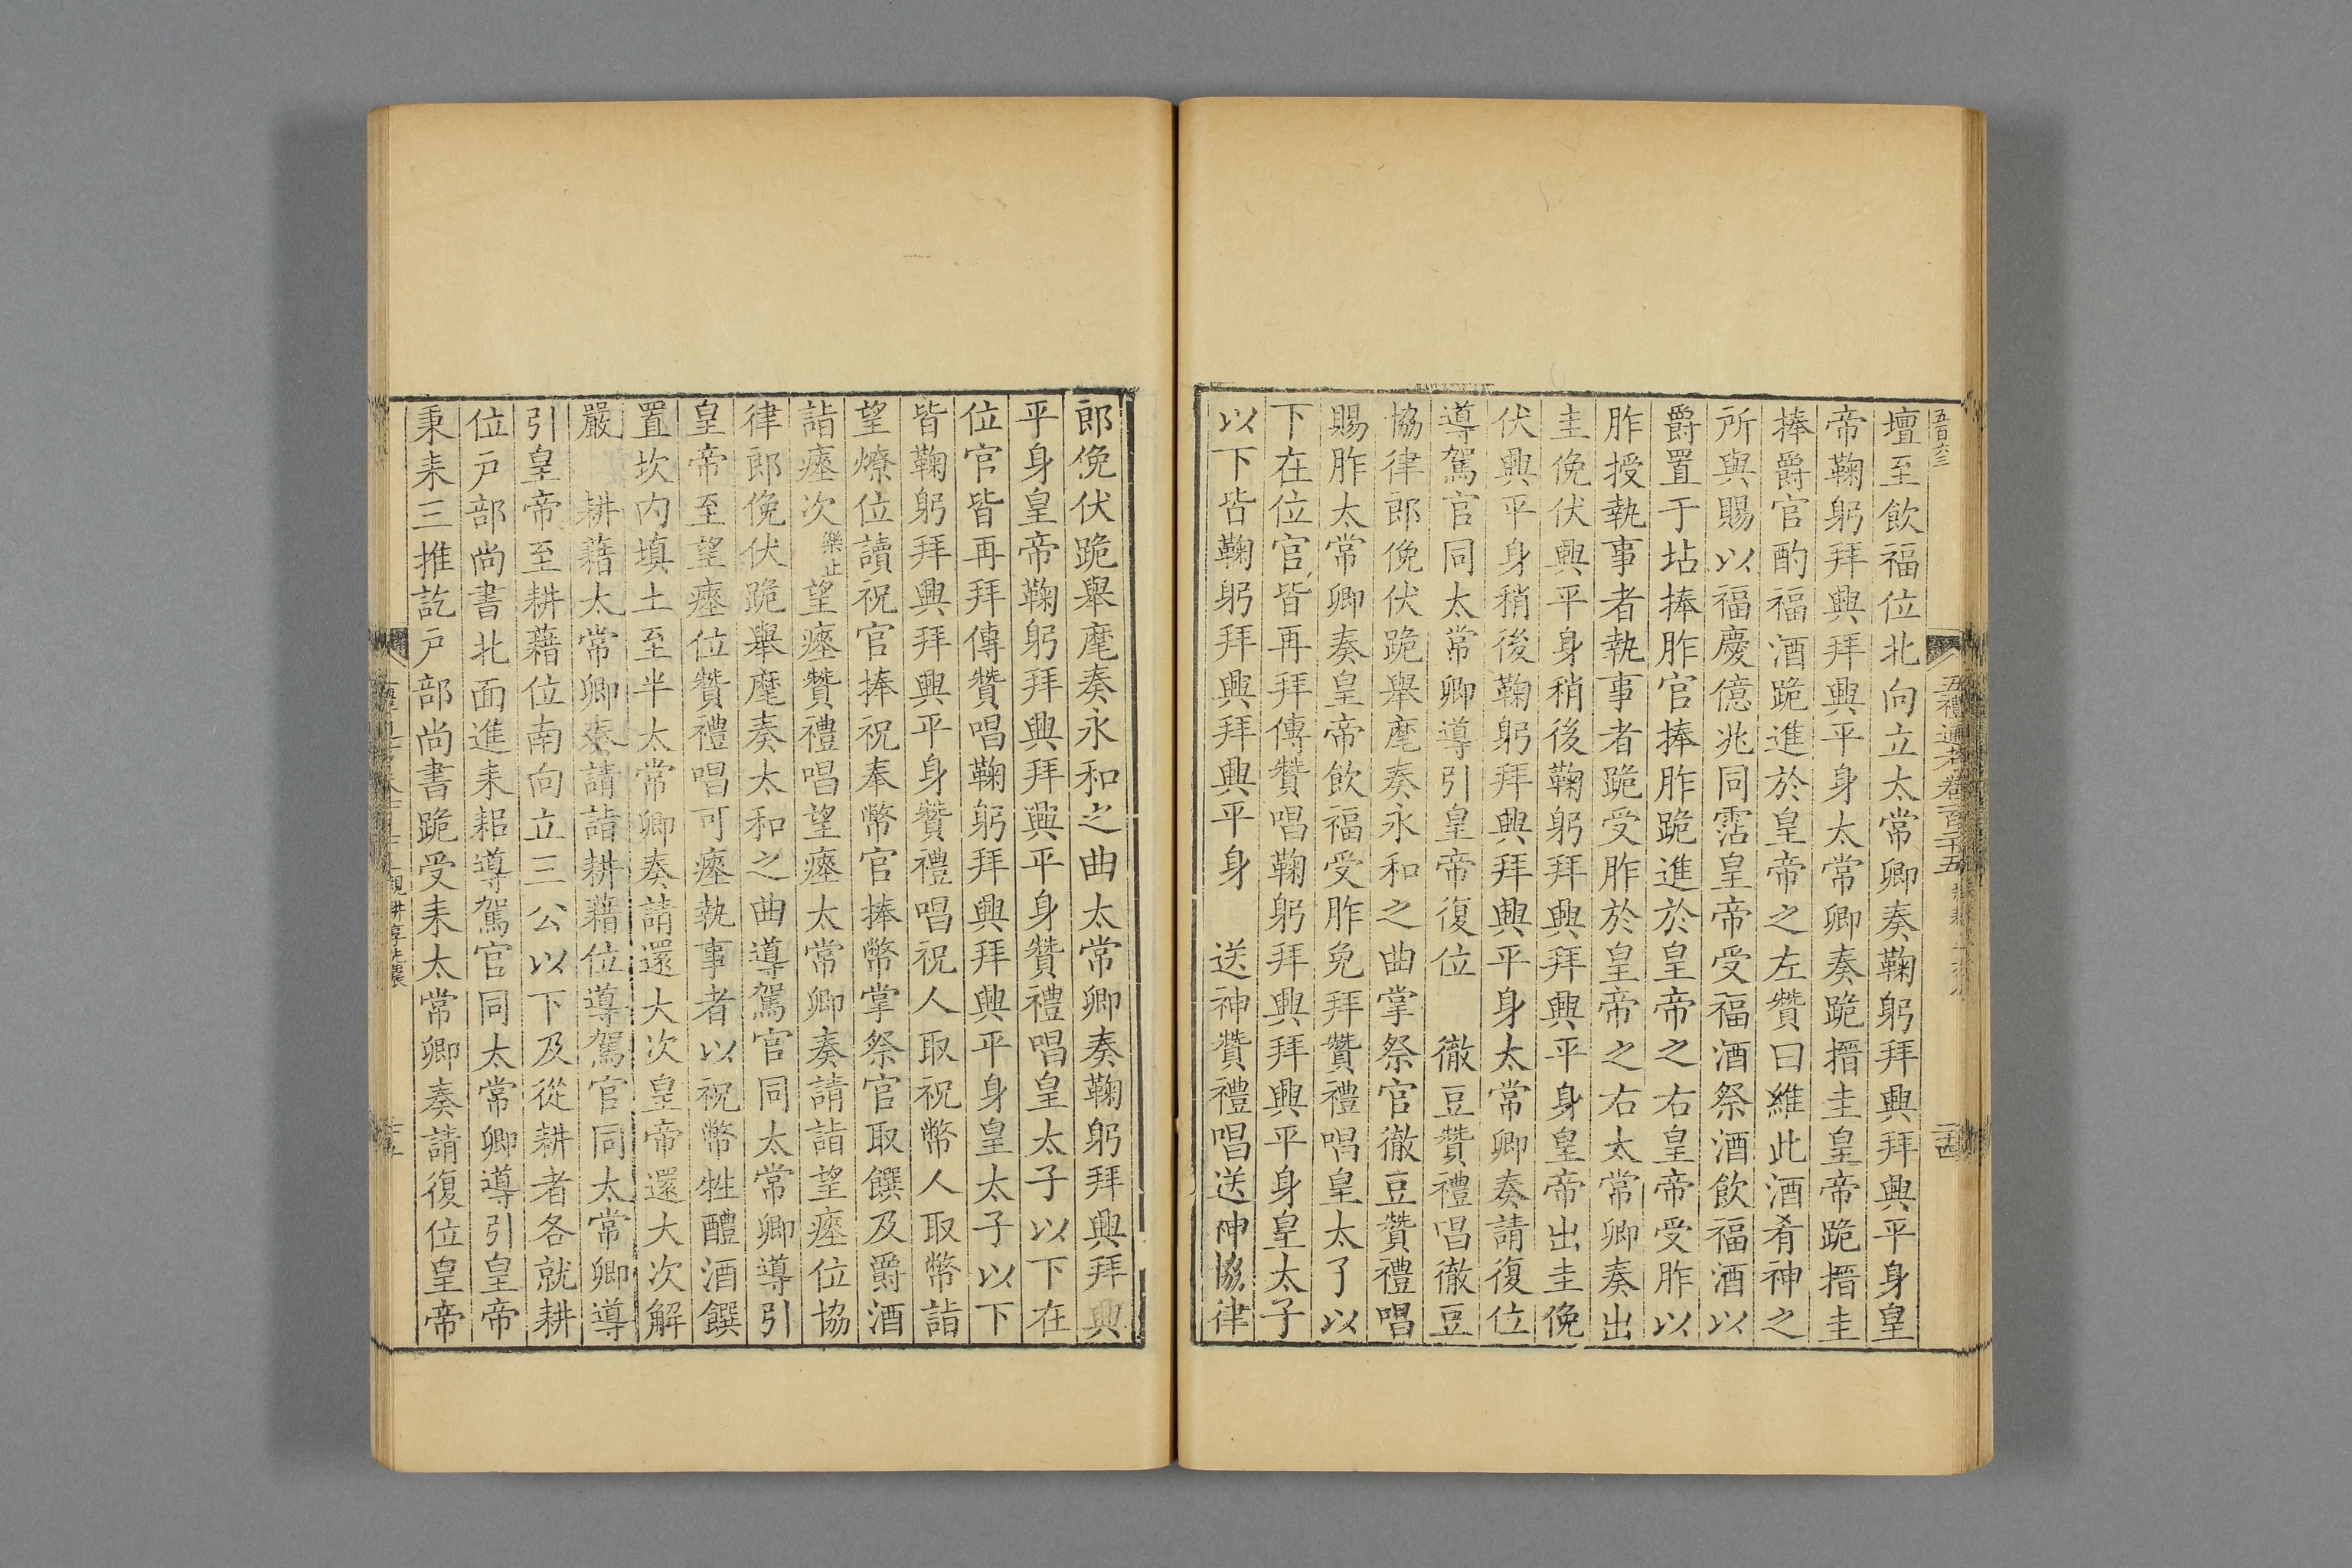 五百六三
五禮通考卷一百二十五
壇至飲福位北向立太常卿奏鞠躬拜興拜興平身皇
帝鞠躬拜興拜興平身太常卿奏跪搢圭皇帝跪搢圭
捧爵官酌福酒跪進於皇帝之左贊曰維此酒肴神之
所與賜以福慶億兆同霑皇帝受福酒祭酒飲福酒以
爵置于坫捧胙官捧胙跪進於皇帝之右皇帝受胙以
胙授執事者執事者跪受胙於皇帝之右太常卿奏出
圭俛伏興平身稍後鞠躬拜興拜興平身皇帝出圭俛
伏興平身稍後鞠躬拜興拜興平身太常卿奏請復位
導駕官同太常卿導引皇帝復位　徹豆贊禮唱徹豆
協律郎俛伏跪舉麾奏永和之曲掌祭官徹豆贊禮唱
賜胙太常卿奏皇帝飲福受胙免拜贊禮唱皇太了以
下在位官皆再拜傳贊唱鞠躬拜興拜興平身皇太子
以下皆鞠躬拜興拜興平身　送神贊禮唱送神協律
郎俛伏跪舉麾奏永和之曲太常卿奏鞠躬拜興拜興
平身皇帝鞠躬拜興拜興平身贊禮唱皇太子以下在
位官皆再拜傳贊唱鞠躬拜興拜興平身皇太子以下
皆鞠躬拜興拜興平身贊禮唱祝人取祝幣人取幣詣
望燎位讀祝官捧祝奉幣官捧幣掌祭官取饌及爵酒
詣瘞次樂止望瘞贊禮唱望瘞太常卿奏請詣望瘞位協
律郎俛伏跪舉麾奏太和之曲導駕官同太常卿導引
皇帝至望瘞位贊禮唱可瘞執事者以祝幣牲醴酒饌
置坎內填土至半太常卿奏請還大次皇帝還大次解
嚴　耕藉太常卿奏請詣耕藉位導駕官同太常卿導
引皇帝至耕藉位南向立三公以下及從耕者各就耕
位戶部尚書北面進耒耜導駕官同太常卿導引皇帝
秉耒三推訖戶部尚書跪受耒太常卿奏請復位皇帝
親耕享先農